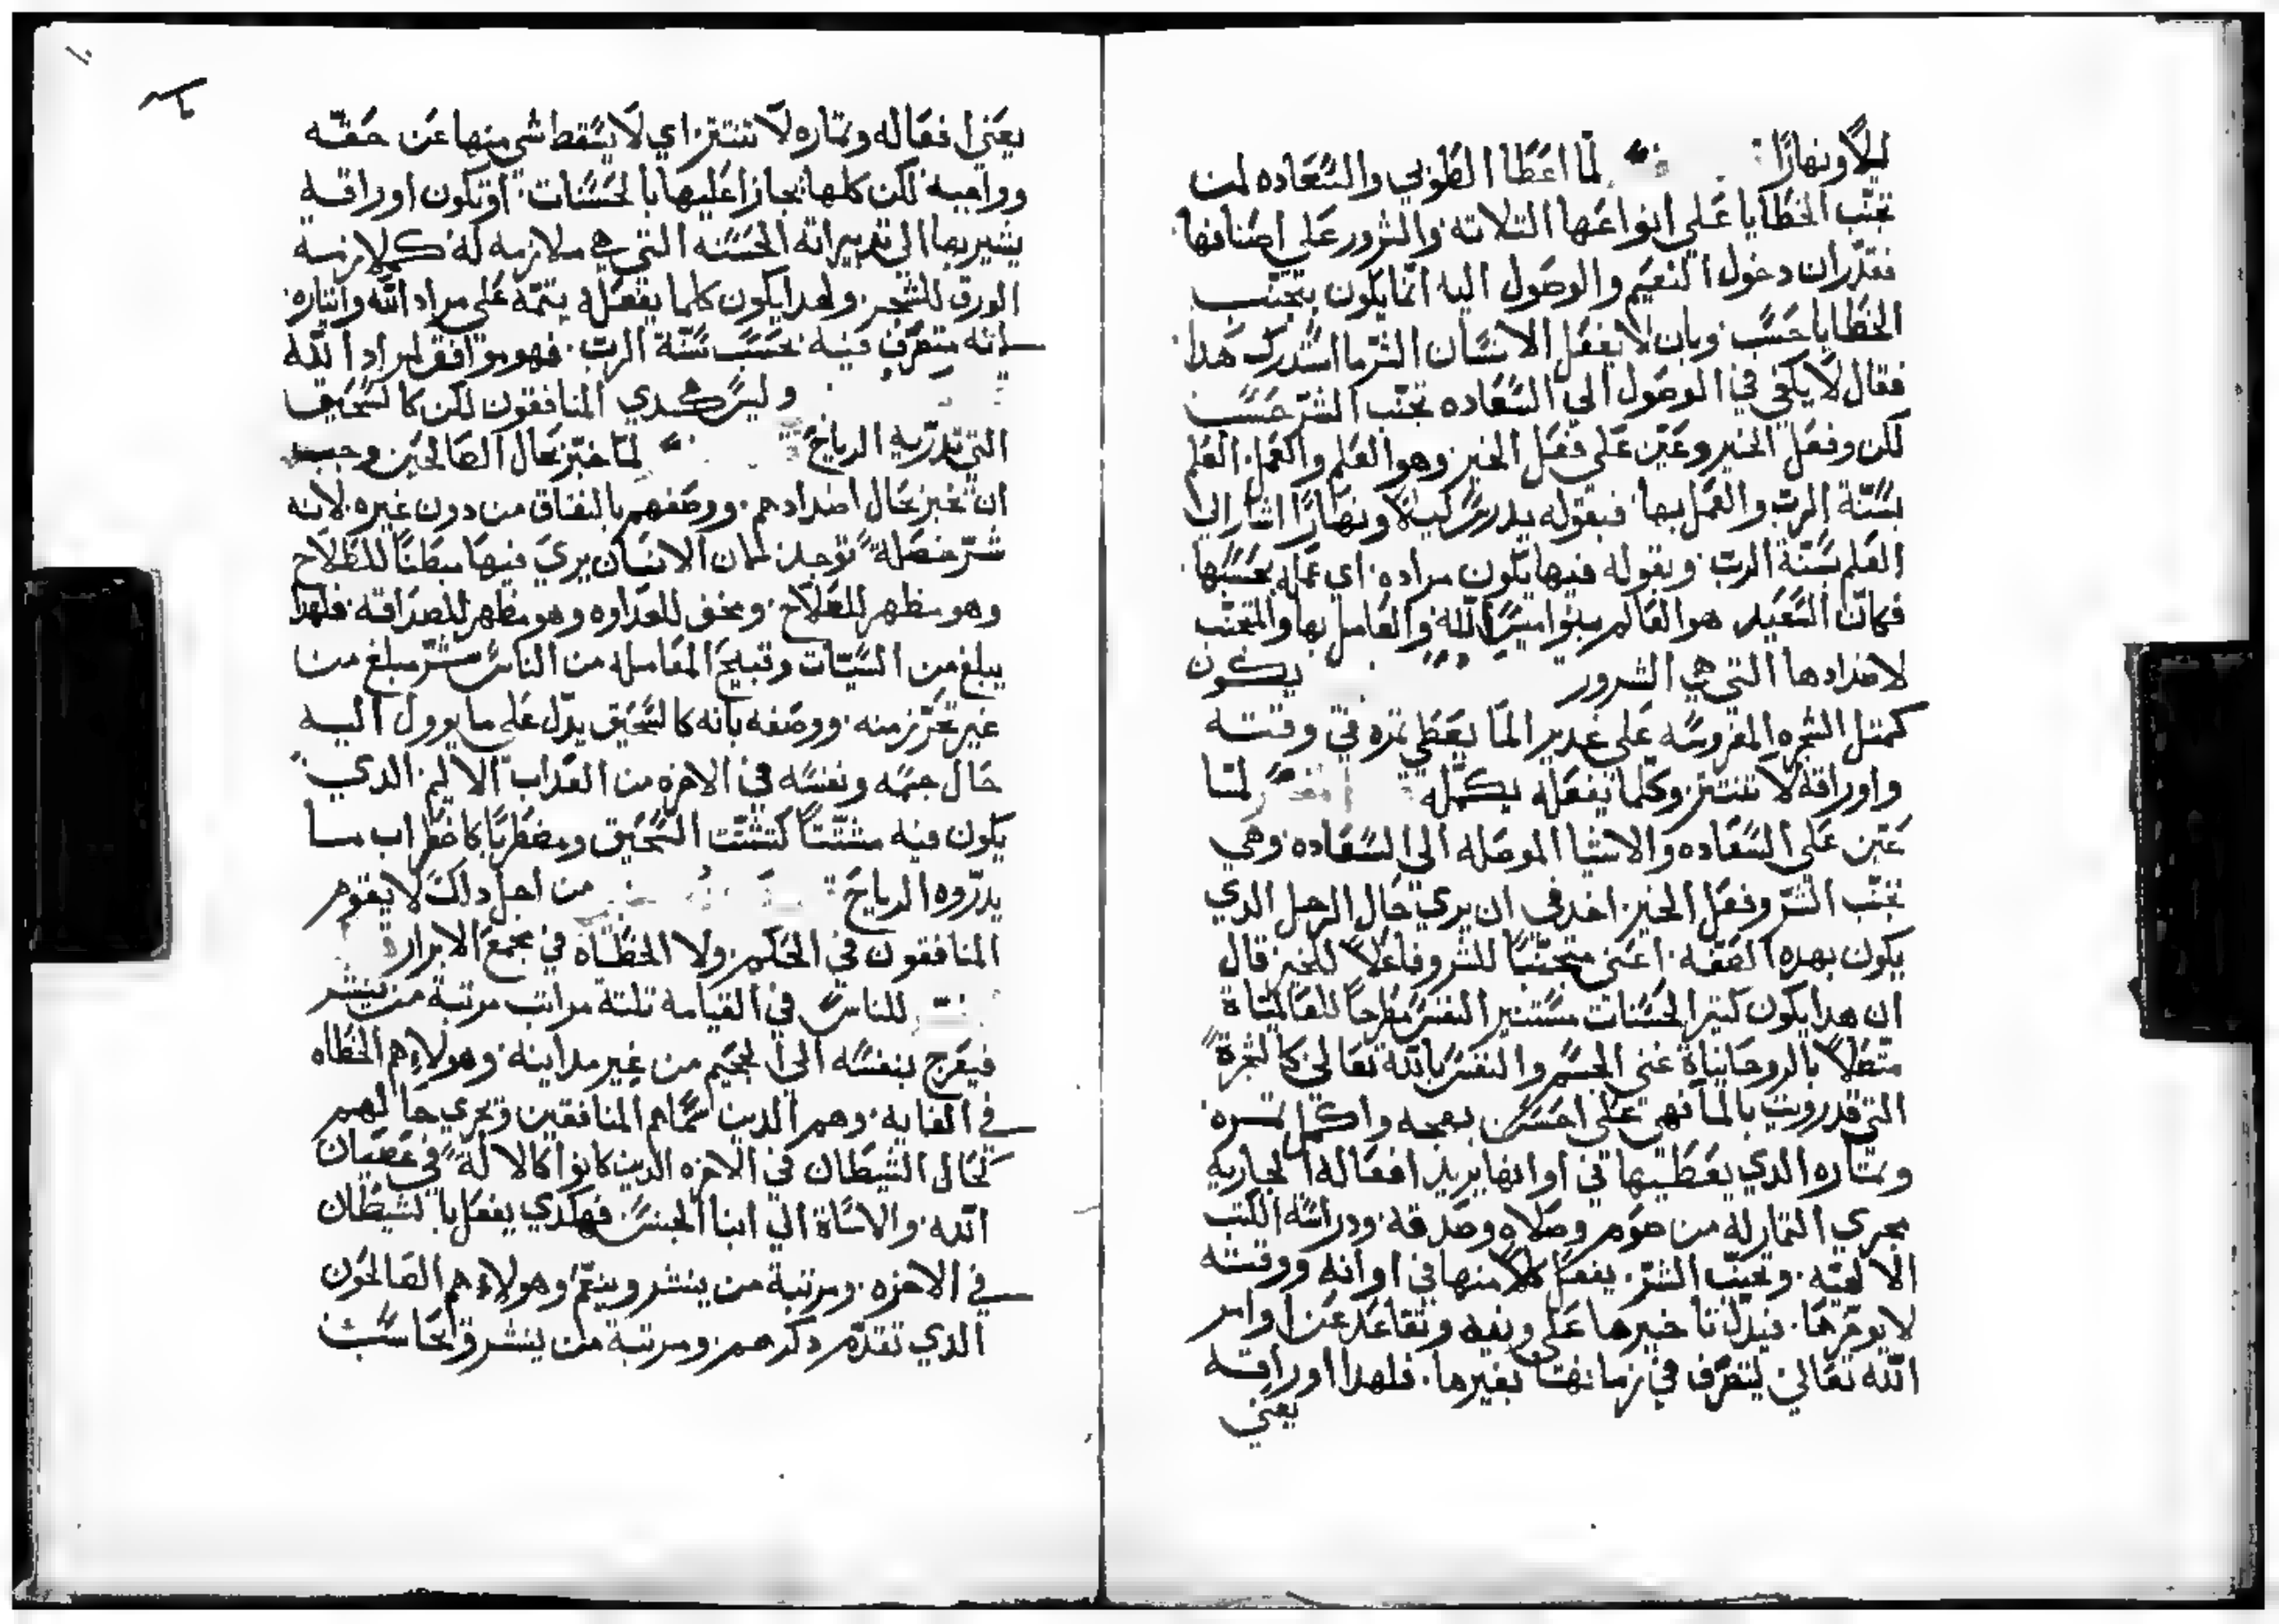 ليلاً ونهارًا لمّا اعَطَا الطَوبي والسَّعَاده لمن
تجنّب الخطايا عَلي انواعَها التلاته والشرور عَلي اصَنافها
فقدّران دخول النعَيم والوصَول اليه انّما يكون بتجنّب
الخطايا حسَب وبان لا يفعَل الانسَان الشرّ ما استدرك هَدا
فقال لا يكفي في الوصَول الي السَّعَاده تجنّب الشرّ حسَب
لكن وفعَل الخير وعَيّن عَلي فعَل الخير وهو العَلم والعَمل العَلم
بسُنّة الربّ والعَمل بها فبقوله يدرسَ ليلاً ونهَارًا اشار الي
العَلم بسُنّة الربّ وبقوله فيها يكون مراده اي عَمله بحسَبها
فكانّ السَّعَيد هو العَالم بنواميسَ الله والعَامل بها والمتجنّب
لاضدادها التي هي الشرور يكون
كمتل الشجره المغروسَه عَلي غدير الما يعَطي تمره في وقته
واوراقه لا تنتتر وكلما يفعَله يكمّله لمّا
عَيّن عَلي السَّعَاده والاشيا الموصَله الي السَّعَاده وهي
تجنّب الشرّ وفعَل الخير اخد في ان يري حَال الرجل الدي
يكون بهده الصَفه اعَني متجنّبًا للشر وفاعَلاً للخير قال
ان هدا يكون كتير الحسَنات مسَتنير النفسَ مطَرحًا للعَالميّاة
متّصَلاً بالروحَانياة غني الجسَم والنفسَ بالله تعَالي كالشجرة
التي قد رويت بالما فهي عَلي احسَن بهجه واكمل تمره
وتماره الدي يعَطيها في اوانها يريد افعَاله الجاريه
مجري التمار له من صَوم وصَلاه وصَدقه ودراسَه الكتب
الالهيّه وتجنّب الشرّ يفعَل كلاً منها في اوانه ووقته
لا يوخّرها فيدلنا خيرها عَلي وتقاعَد عَن اوامر
الله تعَالي ليتصَرّف في زمانها بغيرها فلهدا اوراقه
يعَني
يعَني افعَاله وتماره لا تنتتر اي لا يسَقط شي منها عَن حَقّه
وواجبه لكن كلها يجازا عَليها بالحسَنات او تكون اوراقه
يشير بها الي تدبيراته الحسَنه التي هي ملازمه له كملازمة
الورق للشجر ولهدا يكون كلما يفعَله يتمّه عَلي مراد الله وايتاره
لانه يتصَرّف فيه بحسَب سُنّة الربّ فهو موافق لمراد الله
وليسَ كدي المنافقون لكن كالسَحَيق
التي تدرّيه الرياح لمّا خبّر بحَال الصَالحَين وجب
ان يخبر بحَال اضدادهم ووصَفهم بالنفاق من دون غيره لانه
شرّ خصَلة توجد لان الانسَان يري فيها مبطنًا للطلاح
وهو مظهر للصَلاح ومخفي للعَداوه وهو مظهر للصَداقه فلهدا
يبلغ من السَيّات وقبيح المعَامله من الناسَ شرّ مبلغ من
غير تحَرّز منه ووصَفه بانه كالسَحَيق يدّل عَلي ما يوول اليه
حَال جسَمه ونفسَه في الاخره من العَداب الاليم الدي
يكون فيه مشتّتًا كتشتّت السَحَيق ومضطربًا كاضطراب ما
يدرّوه الرياح من اجل داك لا يقوم
المنافقون في الحَكم ولا الخطَاه في مجمع الابرار
للناسَ في القيامه تلتة مراتب مرتبة من ينشر
فيعَرج بنفسَه الي الجحَيم من غير مداينه وهولاءِ هم الخطَاه
في الغايه وهم الدين سَمّاهم المنافقين وتجري حَالهم
كحَال الشيطَان في الاخره الدين كانوا كالالة في عَصيَان
الله والاسَاة الي ابنا الجنسَ فهكدي يفعَل بالشيطَان
في الاخره ومرتبة من ينشر وينعّم وهولاءِ هم الصَالحَون
الدي تقدّم دكرهم ومرتبة من ينشر ويحَاسَب